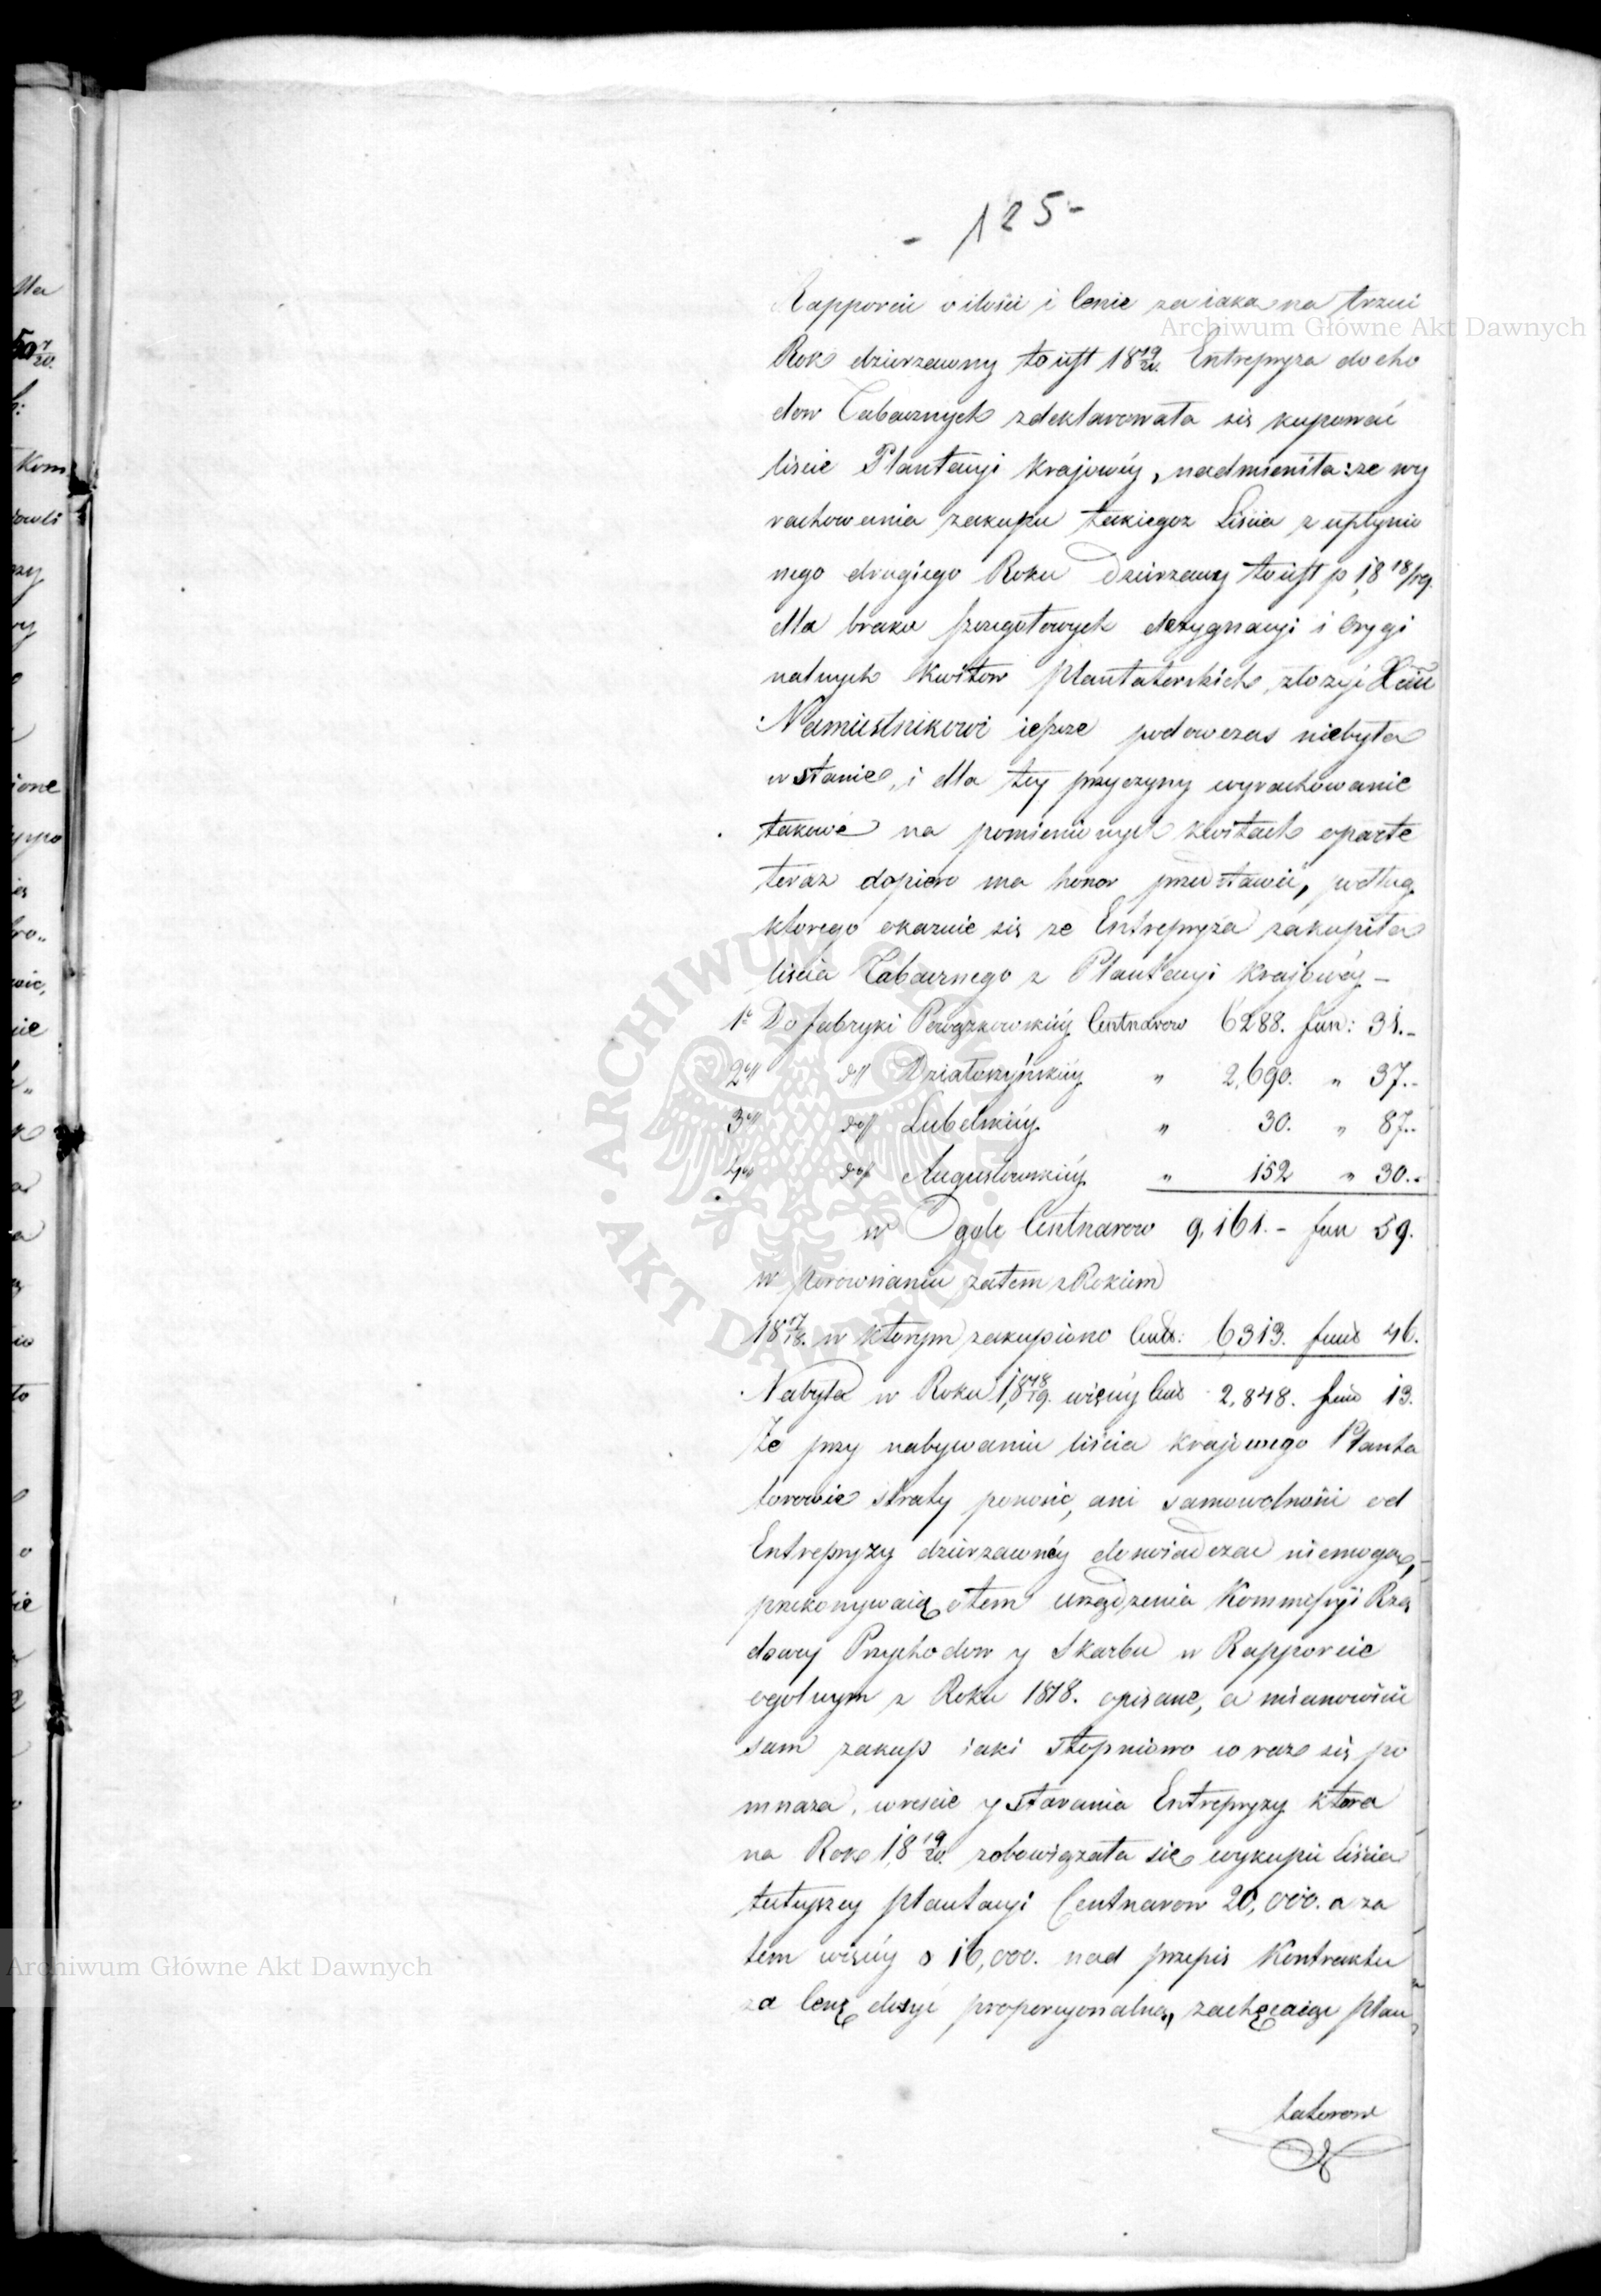 - 125 -
Rapporcie o ilości i Cenie za iaką na trzeci
Rok dzierzawny to iest 18 19/20. Entrepryza docho
dow Tabacznych zdeklarowała się kupować
liście Plantacyi Krajowéy, nadmieniła: że wy
rachowania zakupu takiegoz Liścia z upłynio
nego drugiego Roku Dzierzawy to iest p 18 18/19.
dla braku szczegołowych dezygnacyi i Orygi
nalnych Kwitow Plantatorskich, złożyć Xciu
Namiestnikowi ieszcze podowczas niebyła
w stanie, i dla tey przyczyny wyrachowanie
takowe na pomienionych kwitach oparte
teraz dopiero ma honor przedstawić, podług
ktorego okazuie się ze Entrepryza zakupiła
liścia Tabacznego z Plantacyi Krajowéy –
1o Do fabryki Powązkowskiéy Centnarow 6288. fun: 31.-
2o do Działoszyńskiéy " 2,690. " 37.-
3o do Lubelskiéy " 30. " 87.-
4o do Augustowskiéy " 152 " 30.-
w Ogole Centnarow 9,161.- fun 59.
w porownaniu zatem z Rokiem
18 17/18. w ktorym zakupiono Cent: 6313. funt 46.
Nabyła w Roku 18 18/19. więcéy Cent 2,848. funt 13.
Ze przy nabywaniu liścia krajowego Planta
torowie straty ponosić, ani samowolności od
Entrepryzy dzierzawnéy doswiadczać niemogą,
przekonywaią o tem urządzenia Kommissyi Rzą
dowey Przychodow y Skarbu w Rapporcie
ogolnym z Roku 1818. opisane, a mianowicie
sam zakup iaki stopniowo co raz się po
mnaza, wreście y starania Entrepryzy ktora
na Rok 18 19/20. zobowiązała się wykupić Liścia
tuteyszey Plantacyi Centnarow 20,000. a za
tem więcéy o 16,000. nad przepis Kontraktu
za Cenę dosyć proporcyonalną, zachęcaiąc Plan
tatorow